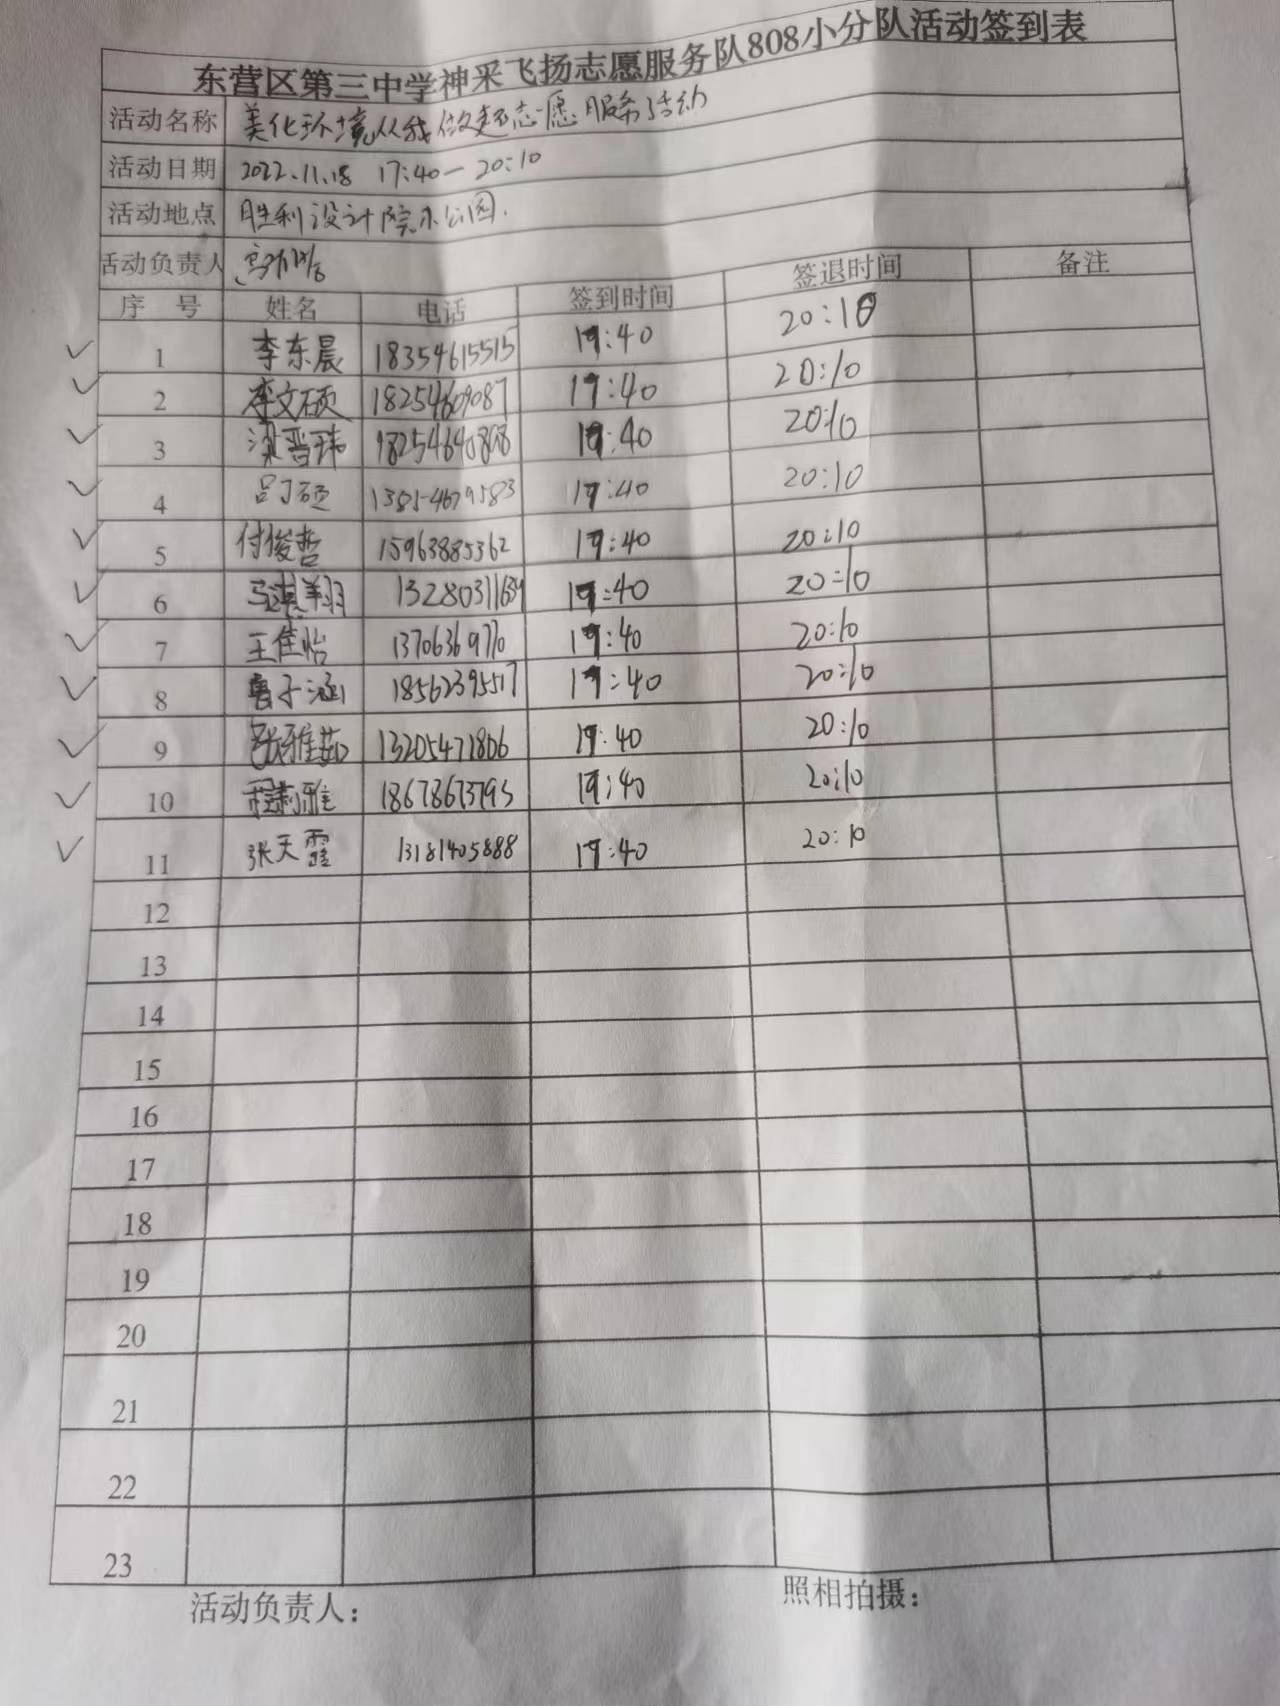 东营区第三中学神采飞扬志愿服务队808小分队活动签到表
活动名称 美化环境从我做起志愿服务活动
活动日期 2022.11.18 17:40—20:10
活动地点 胜利设计院水公园.
活动负责人
序号 姓名 电话 签到时间 签退时间 备注
1 李东晨 18354615515 17:40 20:10
2 李文硕 18254609087 17:40 20:10
3 梁晋玮 18254640808 17:40 20:10
4 吕丁硕 13854679583 17:40 20:10
5 付俊哲 15963885362 17:40 20:10
6 马淇翔 17:40 20:10
7 王佳怡 13706369770 17:40 20:10
8 鲁子涵 18562395517 17:40 20:10
9 张雅茹 13205471806 17:40 20:10
10 程莉雅 18678673795 17:40 20:10
11 张天露 13181405888 17:40 20:10
12
13
14
15
16
17
18
19
20
21
22
23
活动负责人： 照相拍摄：